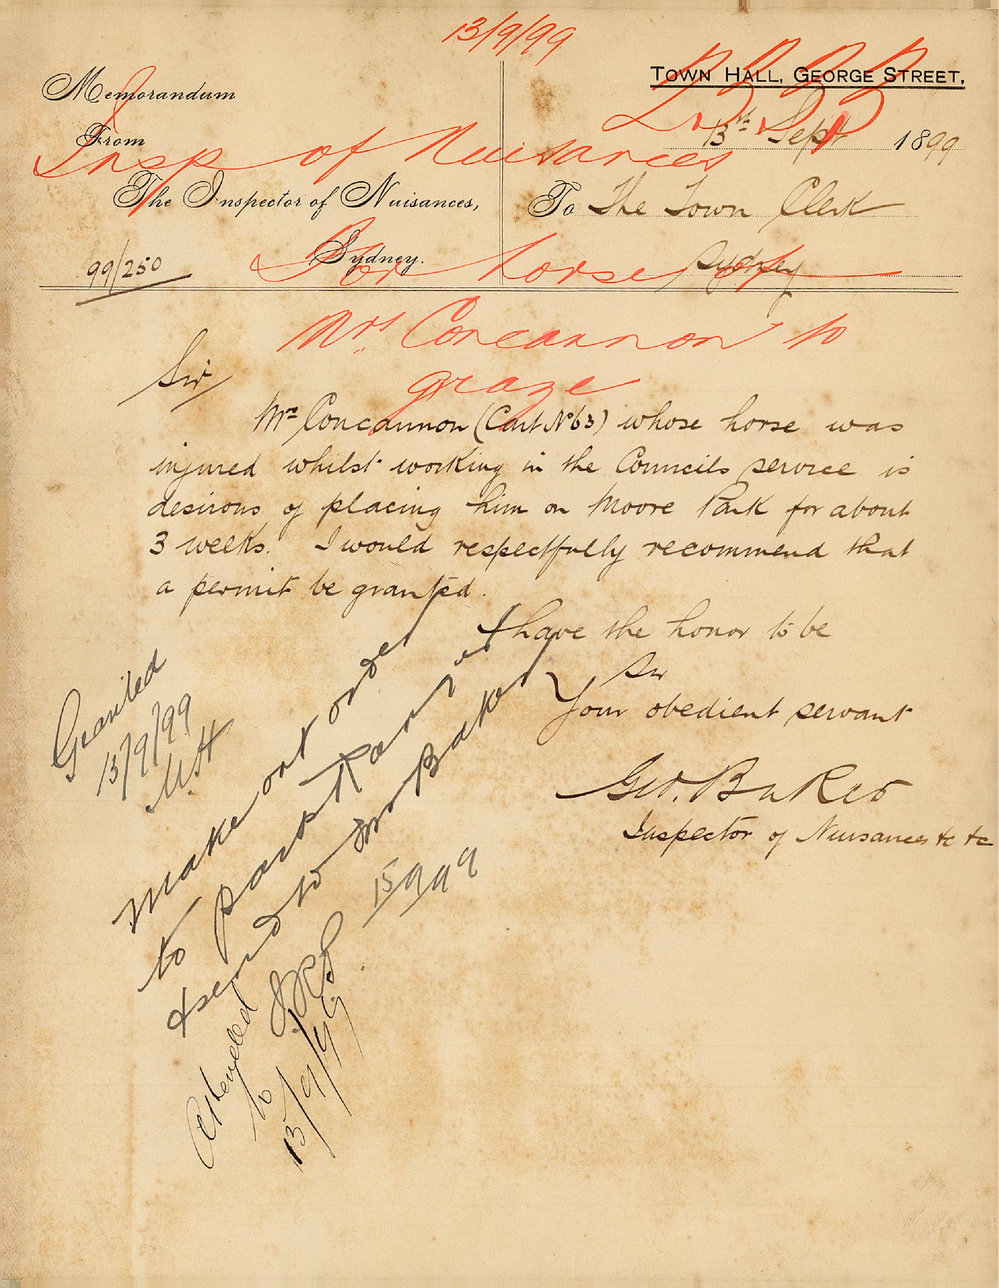 13/9/99
TOWN HALL, GEORGE STREET,
Memorandum
13th Sept 1899
From
Insp of Nuisances
The Inspector of Nuisances,
To The Town Clerk
Sydney.
Sydney
99/250
For horse of
Mrs Concannon to
graze
Sir
Mrs Concannon (Cart No 63) whose horse was
injured whilst working in the Councils service is
desirous of placing him on Moore Park for about
3 weeks. I would respectfully recommend that
a permit be granted.
I have the honor to be
Sir
Your obedient servant
Geo. Baker
Inspector of Nuisances &c &c
Granted
13/9/99
Make out order
to park Ranger
& send to Mr Baker
15/9/99
Attended
to
13/9/99